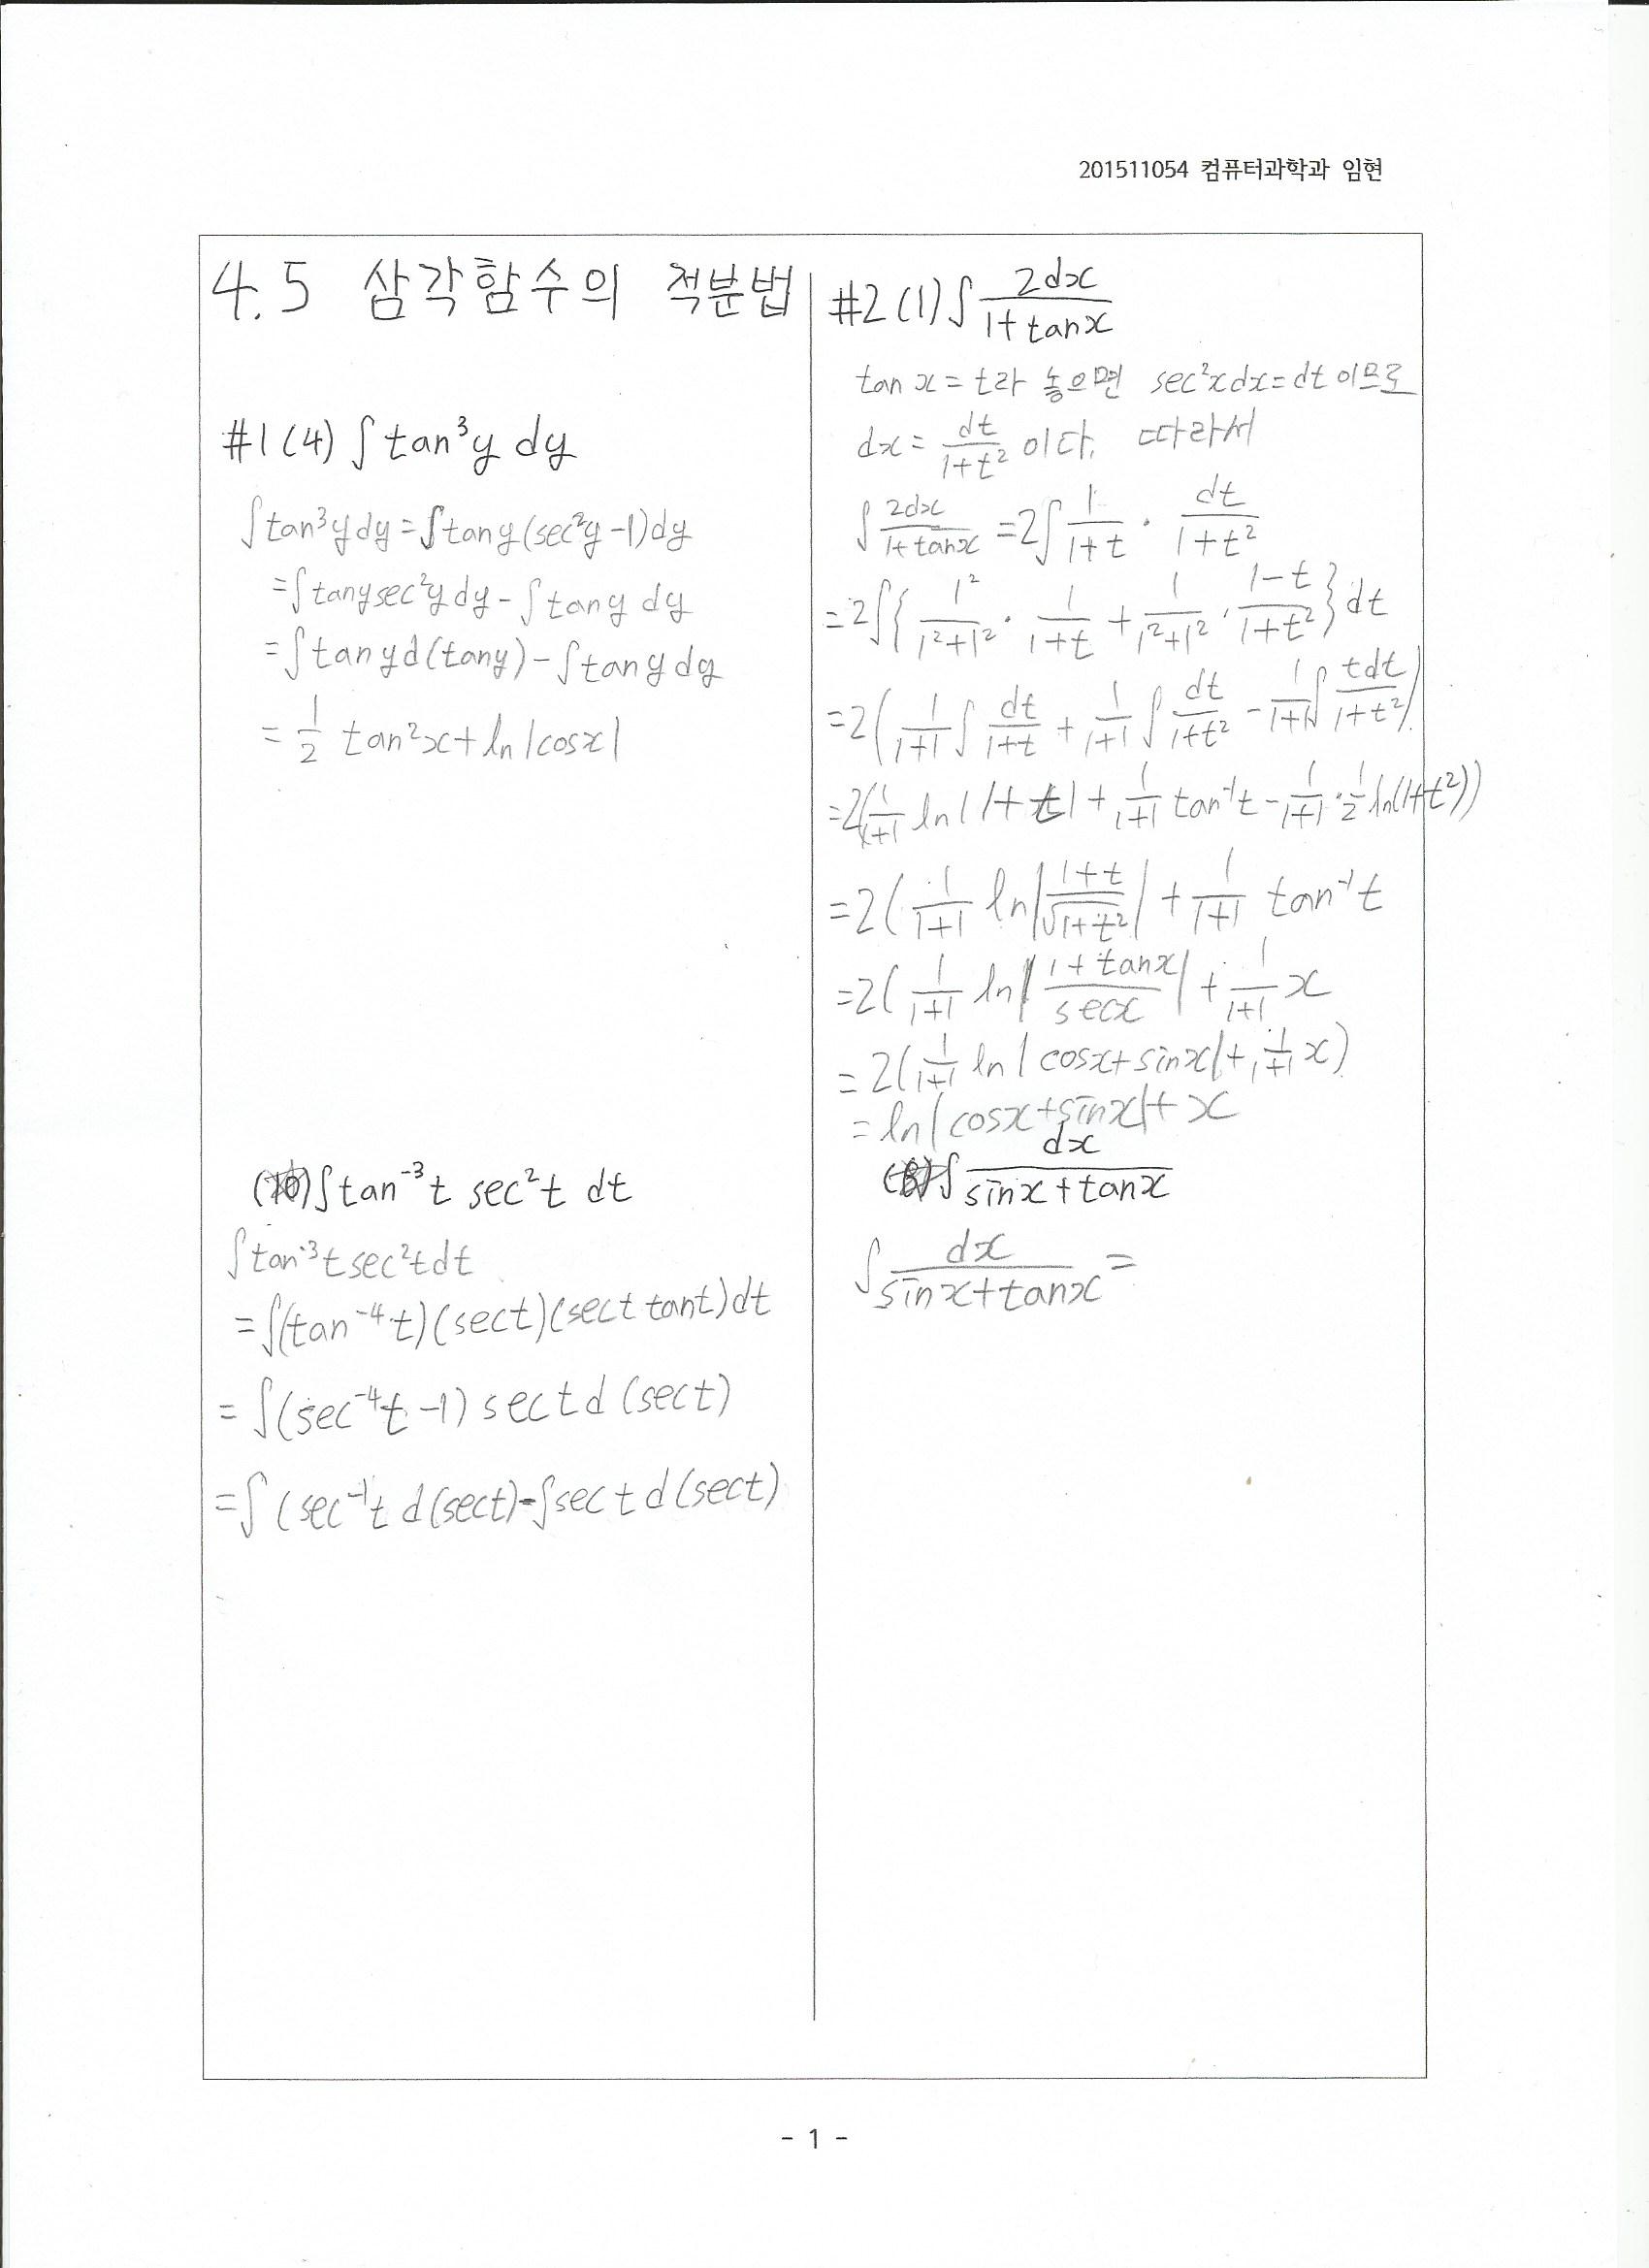 201511054 컴퓨터과학과 임현
4.5 삼각함수의 적분법
#1(4) ∫tan³y dy
∫tan³y dy = ∫tany(sec²y-1)dy
=∫tanysec²ydy-∫tany dy
=∫tanyd(tany)-∫tanydy
= 1/2 tan²x+ln|cosx|
∫tan⁻³t sec²t dt
∫tan⁻³t sec²t dt
=∫(tan⁻⁴t)(sect)(sect tant)dt
=∫(sec⁻⁴t-1)sectd(sect)
=∫(sec⁻¹t d(sect)-∫sectd(sect)
#2(1)∫ 2dx/(1+tanx)
tan x = t라 놓으면 sec²xdx=dt이므로
dx = dt/(1+t²) 이다. 따라서
∫ 2dx/(1+tanx) = 2∫ 1/(1+t) · dt/(1+t²)
=2∫{ 1²/(1²+1²) · 1/(1+t) + 1/(1²+1²) · (1-t)/(1+t²) }dt
=2( 1/(1+1) ∫ dt/(1+t) + 1/(1+1) ∫ dt/(1+t²) - 1/(1+1) ∫ tdt/(1+t²) )
=2( 1/(1+1) ln|1+t| + 1/(1+1) tan⁻¹t - 1/(1+1) · 1/2 ln(1+t²))
=2( 1/(1+1) ln| (1+t)/√(1+t²) | + 1/(1+1) tan⁻¹t
=2( 1/(1+1) ln| (1+tanx)/secx | + 1/(1+1) x
=2( 1/(1+1) ln|cosx+sinx|+ 1/(1+1) x)
=ln|cosx+sinx|+x
∫ dx/(sinx+tanx)
∫ dx/(sinx+tanx) =
- 1 -